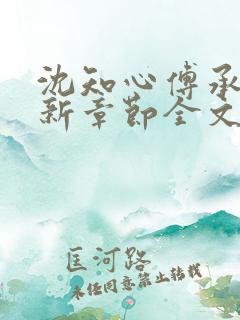 沈知心傅承
新章节全文
匡河路
未经同意禁止转载